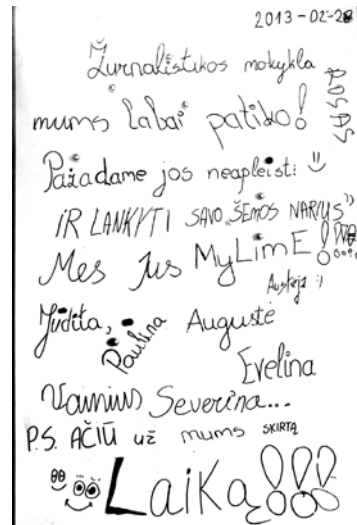 2013-02-28
Žurnalistikos mokykla
mums labai patiko!
Pažadame jos neapleisti
IR LANKYTI SAVO „ŠEIMOS NARIUS“
Mes Jus MyLimE!!!
Austėja :)
Judita, Paulina Augustė
Evelina
Vainius Severina...
P.S. AČIŪ už mums SKIRTĄ
LaiKą!!!